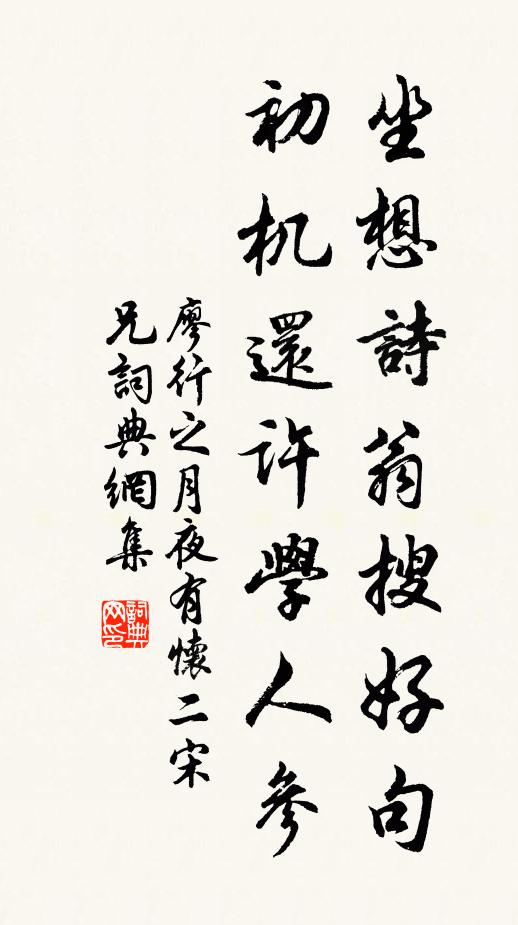 坐想詩翁搜好句
初机還許學人參
廖行之月夜有懷二宋
兄詞典網集
詞典網印